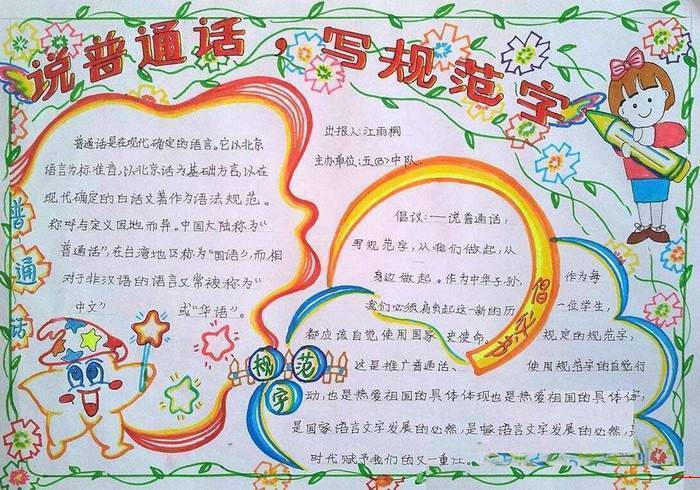 说普通话，写规范字
普通话是在现代确定的语言。它以北京
语言为标准音，以北京话为基础方言，以在
现代确定的白话文著作为语法规范。
称呼与定义因地而异。中国大陆称为“
普通话”，在台湾地区称为“国语”，而相
对于非汉语的语言又常被称为“
中文” 或“华语”。
普通话
出报人：江雨桐
主办单位：五(3)中队
倡议：——说普通话，
写规范字，从我们做起，从
身边做起。作为中华子孙，
作为每
我们必须肩负起这一新的历
一位学生，
都应该自觉使用国家 史使命。 规定的规范字，
这是推广普通话、 使用规范字的自觉行
动，也是热爱祖国的具体体现也是热爱祖国的具体体，
是国家语言文字发展的必然，是语言文字发展的必然，
时代赋予我们的又一重任。
倡
规范字